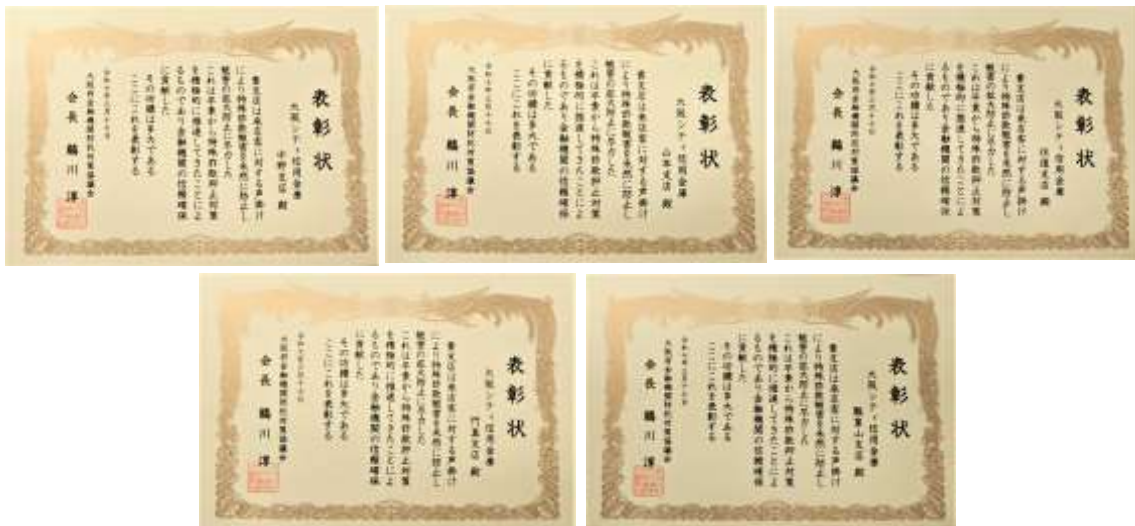 表彰状
大阪シティ信用金庫
中野支店 殿
貴支店は来店客に対する声掛け
により特殊詐欺被害を未然に防止し
被害の拡大防止に尽力した
これは平素から特殊詐欺抑止対策
を積極的に推進してきたことによ
るものであり金融機関の信頼確保
に貢献した
その功績は多大である
ここにこれを表彰する
令和七年三月十七日
大阪府金融機関防犯対策協議会
会長 鶴川 淳
表彰状
大阪シティ信用金庫
山本支店 殿
貴支店は来店客に対する声掛け
により特殊詐欺被害を未然に防止し
被害の拡大防止に尽力した
これは平素から特殊詐欺抑止対策
を積極的に推進してきたことによ
るものであり金融機関の信頼確保
に貢献した
その功績は多大である
ここにこれを表彰する
令和七年三月十七日
大阪府金融機関防犯対策協議会
会長 鶴川 淳
表彰状
大阪シティ信用金庫
住道支店 殿
貴支店は来店客に対する声掛け
により特殊詐欺被害を未然に防止し
被害の拡大防止に尽力した
これは平素から特殊詐欺抑止対策
を積極的に推進してきたことによ
るものであり金融機関の信頼確保
に貢献した
その功績は多大である
ここにこれを表彰する
令和七年三月十七日
大阪府金融機関防犯対策協議会
会長 鶴川 淳
表彰状
大阪シティ信用金庫
門真支店 殿
貴支店は来店客に対する声掛け
により特殊詐欺被害を未然に防止し
被害の拡大防止に尽力した
これは平素から特殊詐欺抑止対策
を積極的に推進してきたことによ
るものであり金融機関の信頼確保
に貢献した
その功績は多大である
ここにこれを表彰する
令和七年三月十七日
大阪府金融機関防犯対策協議会
会長 鶴川 淳
表彰状
大阪シティ信用金庫
瓢箪山支店 殿
貴支店は来店客に対する声掛け
により特殊詐欺被害を未然に防止し
被害の拡大防止に尽力した
これは平素から特殊詐欺抑止対策
を積極的に推進してきたことによ
るものであり金融機関の信頼確保
に貢献した
その功績は多大である
ここにこれを表彰する
令和七年三月十七日
大阪府金融機関防犯対策協議会
会長 鶴川 淳